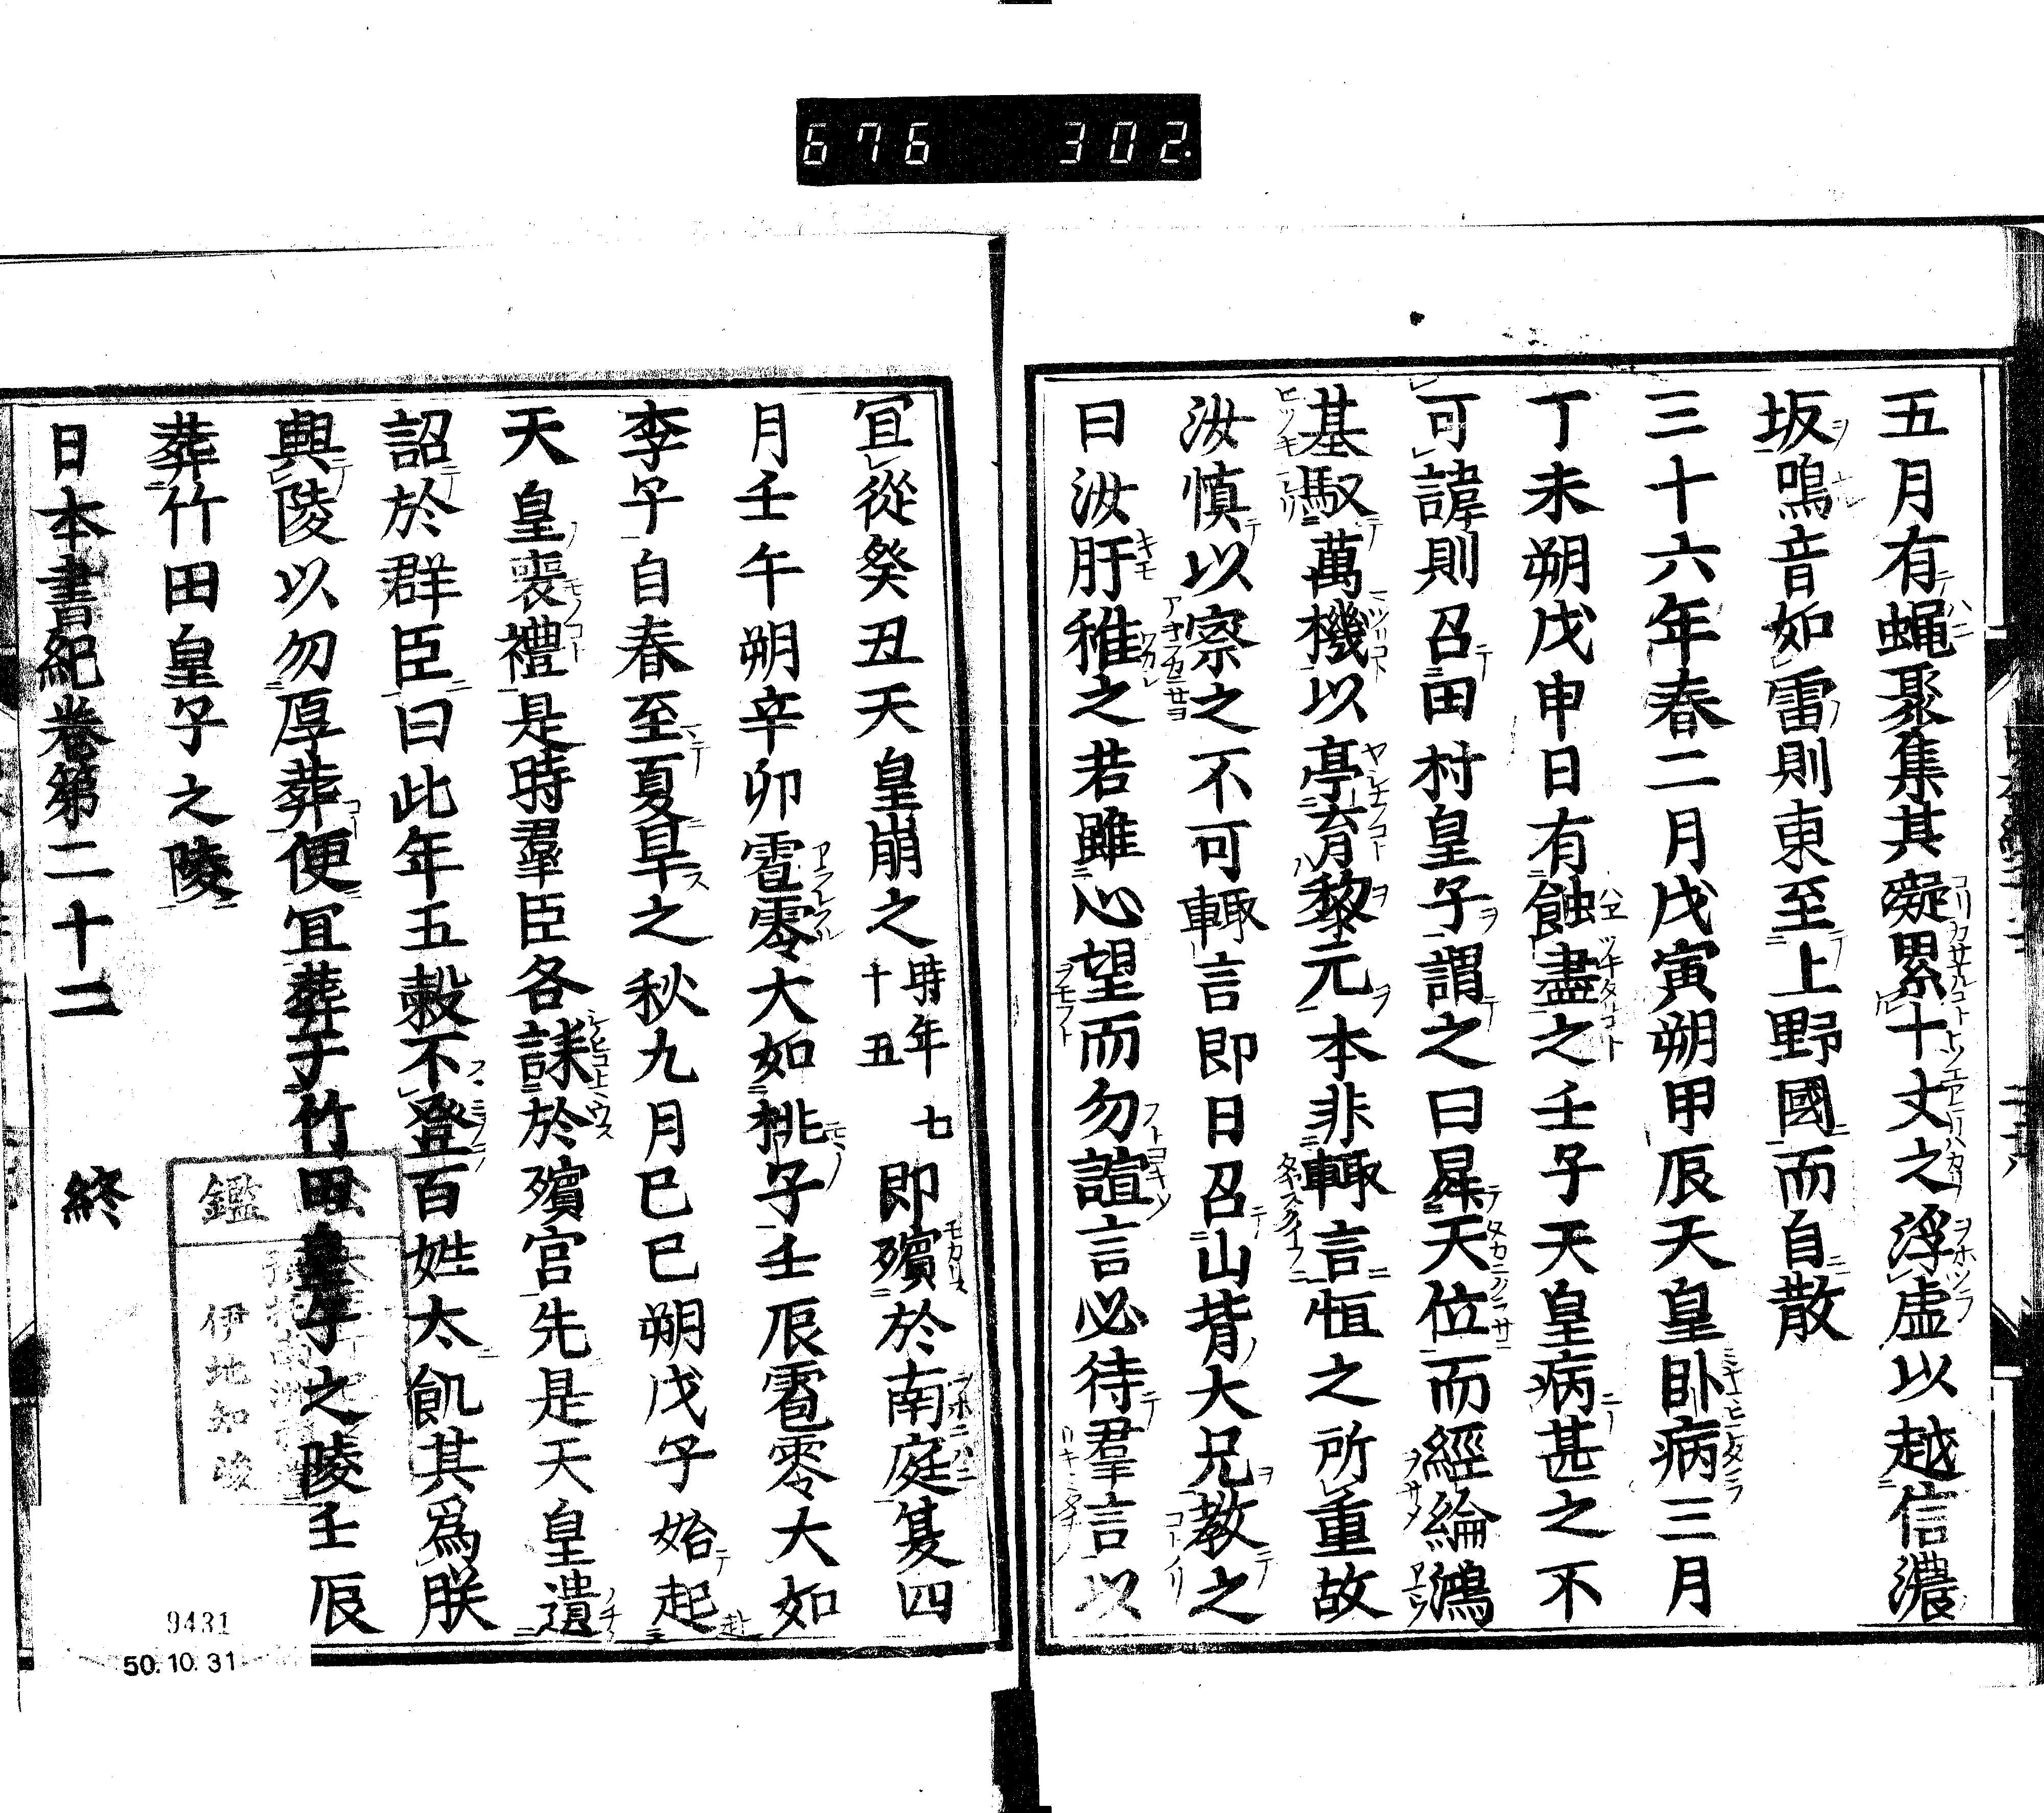 676 302.
五月有蝿聚集其凝累十丈之浮虚以越信濃
坂鳴音如雷則東至上野國而自散
三十六年春二月戊寅朔甲辰天皇臥病三月
丁未朔戊申日有蝕盡之壬子天皇病甚之不
可諱則召田村皇子謂之曰昇天位而經綸鴻
基馭萬機以亭育黎元本非輙言恒之所重故
汝慎以察之不可輙言即日召山背大兄教之
曰汝肝稚之若雖心望而勿諠言必待羣言以
宜從癸丑天皇崩之時年七十五即殯於南庭夏四
月壬午朔辛卯雹零大如桃子壬辰雹零大如
李子自春至夏旱之秋九月己巳朔戊子始起
天皇喪禮是時羣臣各誄於殯宮先是天皇遺
詔於群臣曰此年五穀不登百姓太飢其爲朕
興陵以勿厚葬便宜葬于竹田皇子之陵壬辰
葬竹田皇子之陵
日本書紀卷第二十二 終
鑑
伊地知
9431
50.10.31